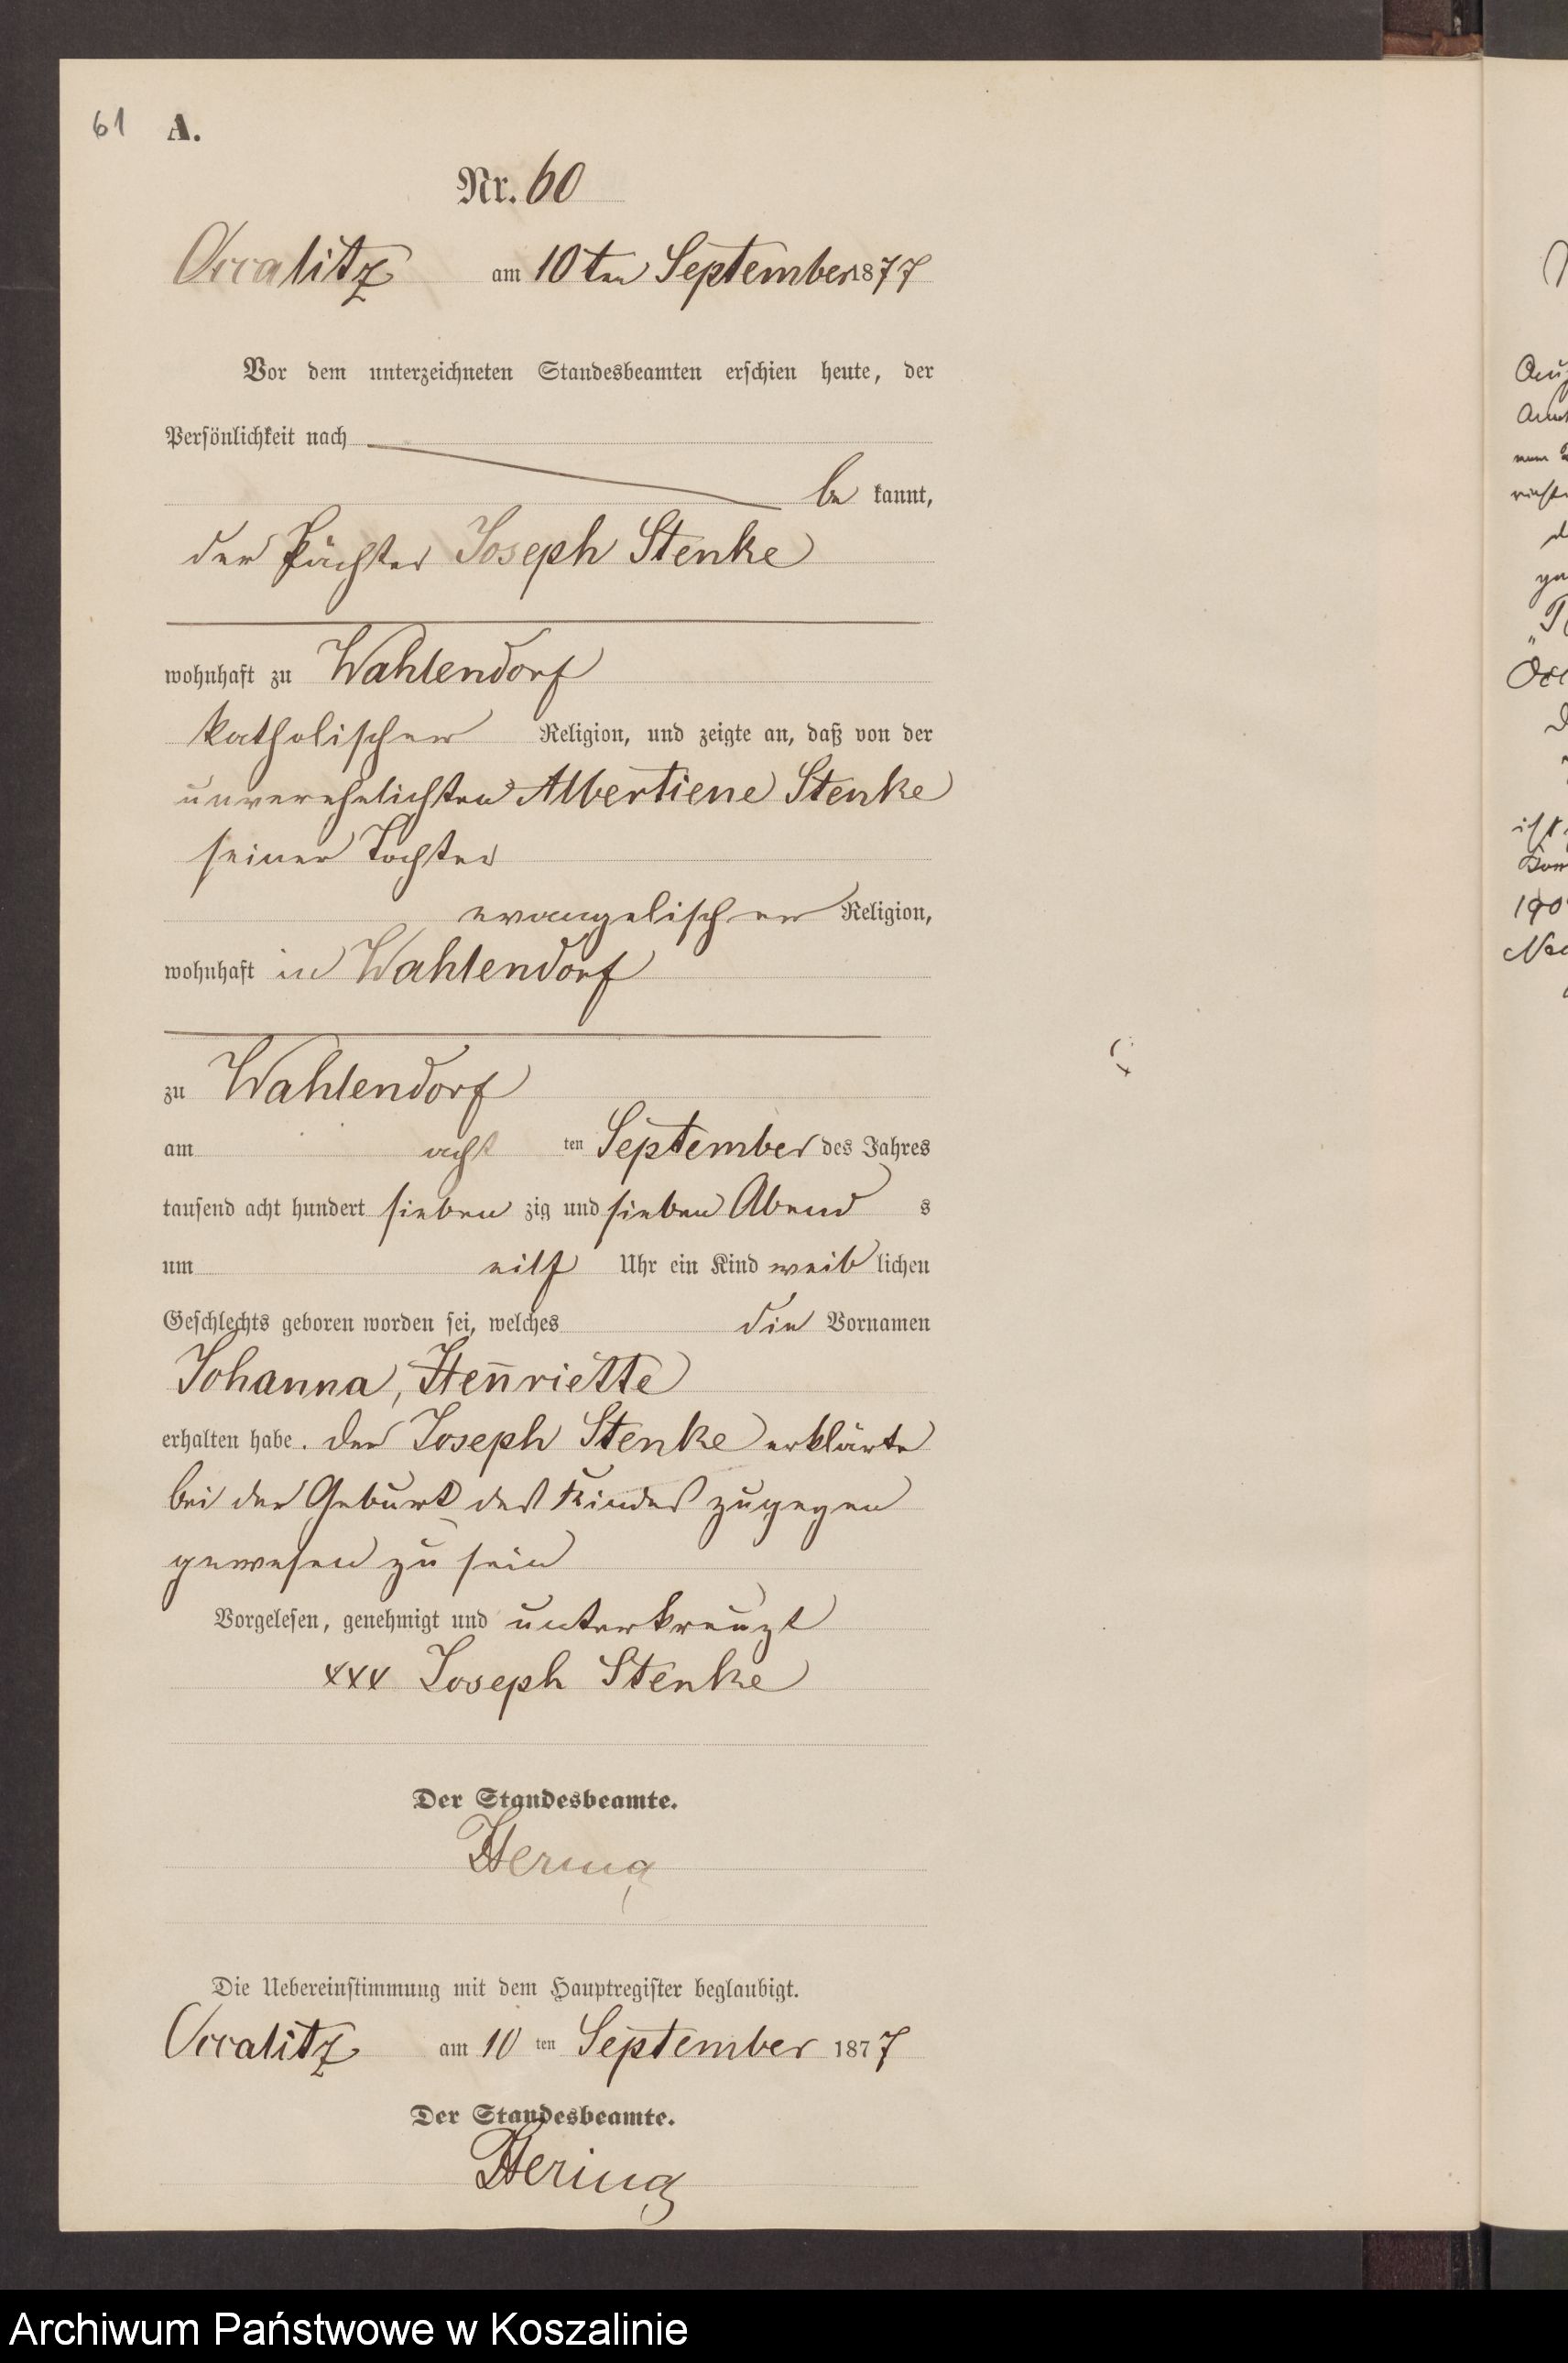 61 A.
Nr. 60
Occalitz am 10ten September 1877
Vor dem unterzeichneten Standesbeamten erschien heute, der
Persönlichkeit nach
be kannt,
der Pächter Joseph Stenke
wohnhaft zu Wahlendorf
katholischer Religion, und zeigte an, daß von der
unverehelichten Albertiene Stenke
seiner Tochter
evangelischer Religion,
wohnhaft in Wahlendorf
zu Wahlendorf
am acht ten September des Jahres
tausend acht hundert sieben zig und sieben Abend s
um eilf Uhr ein Kind weib lichen
Geschlechts geboren worden sei, welches die Vornamen
Johanna, Hen̄riette
erhalten habe. Der Joseph Stenke erklärte
bei der Geburt des Kindes zugegen
gewesen zu sein
Vorgelesen, genehmigt und unterkreuzt
xxx Joseph Stenke
Der Standesbeamte.
Hering
Die Uebereinstimmung mit dem Hauptregister beglaubigt.
Occalitz am 10 ten September 1877
Der Standesbeamte.
Hering
Archiwum Państwowe w Koszalinie